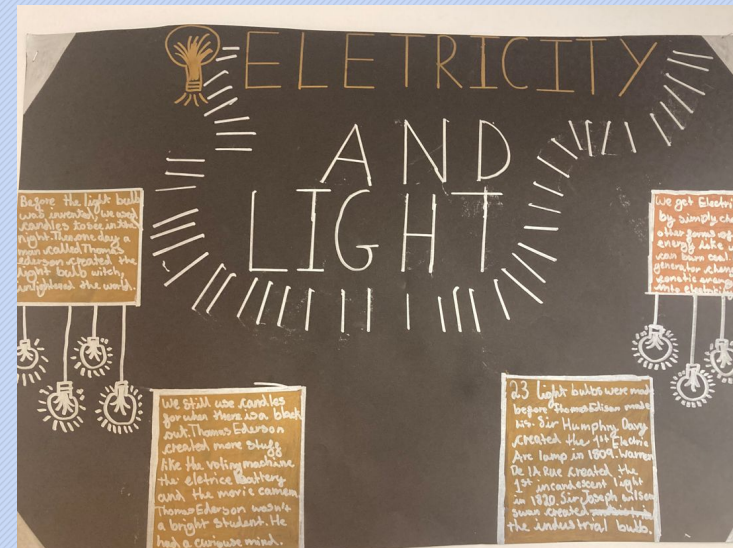 ELETRICITY
AND
LIGHT
Before the light bulb
was invented, we used
candles to see in the
night. Then one day a
man called Thomas
ederson created the
light bulb witch
enlightened the world.
We get Electri
by simply cha
other forms of
energy like
can burn coal.
generator chang
energ
into electri
We still use candles
for when there is a black
out. Thomas Ederson
created more stuff
like the voting machine
the eletrice battery
and the movie camera
Thomas Ederson wasn't
a bright student. He
had a curiouse mind.
23 light bulbs were made
before Thomas Edison made
his. Sir Humphry Davy
created the 1st Electric
Arc lamp in 1809. Warren
De lA Rue created the
1st incandescent light
in 1820. Sir Joseph wilson
swan created
the industrial bulb.